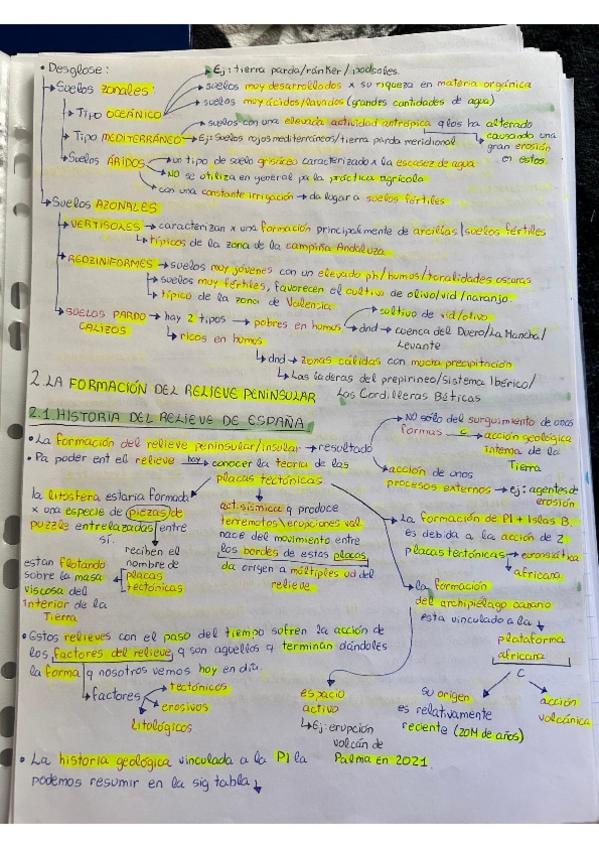 • Desglose:
Ej: tierra parda/ránker/podsoles.
Suelos zonales:
suelos muy desarrollados x su riqueza en materia orgánica
suelos muy ácidos/lavados (grandes cantidades de agua)
Tipo OCEÁNICO
suelos con una elevada actividad antrópica q los ha alterado
causando una gran erosión en estos
Tipo MEDITERRÁNEO → Ej: Suelos rojos mediterráneos/tierra parda meridional
Suelos ÁRIDOS
un tipo de suelo grisáceo caracterizado x la escasez de agua
NO se utiliza en general pa la práctica agrícola
con una constante irrigación → da lugar a suelos fértiles
Suelos AZONALES
VERTISOLES → caracterizan x una formación principalmente de arcillas/suelos fértiles
típicos de la zona de la campiña Andaluza
REDZINIFORMES → suelos muy jóvenes con un elevado ph/humos/tonalidades oscuras
suelos muy fértiles, favorecen el cultivo de olivo/vid/naranjo
típico de la zona de Valencia
SUELOS PARDO CALIZOS → hay 2 tipos → pobres en humos
sultivo de vid/olivo
dnd → cuenca del Duero/La Mancha/
Levante
ricos en humos
dnd → zonas cálidas con mucha precipitación
Las laderas del prepirineo/Sistema Ibérico/
Las Cordilleras Béticas
2. LA FORMACIÓN DEL RELIEVE PENINSULAR
2.1 HISTORIA DEL RELIEVE DE ESPAÑA
• La formación del relieve peninsular/insular → resultado
NO sólo del surguimiento de unas
formas → acción geológica
interna de la
Tierra
acción de unos
procesos externos → ej: agentes de
erosión
• Pa poder ent el relieve hay → conocer la teoría de las
placas tectónicas
la litosfera estaria formada
x una especie de piezas de
puzzle entrelazadas entre
sí.
reciben el
nombre de
placas
tectónicas
estan flotando
sobre la masa
viscosa del
interior de la
Tierra
act.sísmica q produce
terremotos/erupciones vol
nace del movimiento entre
los bordes de estas placas
da origen a múltiples ud del
relieve
La formación de PI + Islas B.
es debida a la acción de 2
placas tectónicas → euroasiática
africana
la formación
del archipiélago canario
esta vinculado a la
plataforma
africana
• Estos relieves con el paso del tiempo sufren la acción de
los factores del relieve q son aquellos q terminan dándoles
la forma q nosotros vemos hoy en día.
factores
tectónicos
erosivos
litológicos
espacio
activo
Ej: erupción
volcán de
Palma en 2021
su origen
es relativamente
reciente (20M de años)
acción
volcánica
• La historia geológica vinculada a la PI la
podemos resumir en la sig tabla ↓